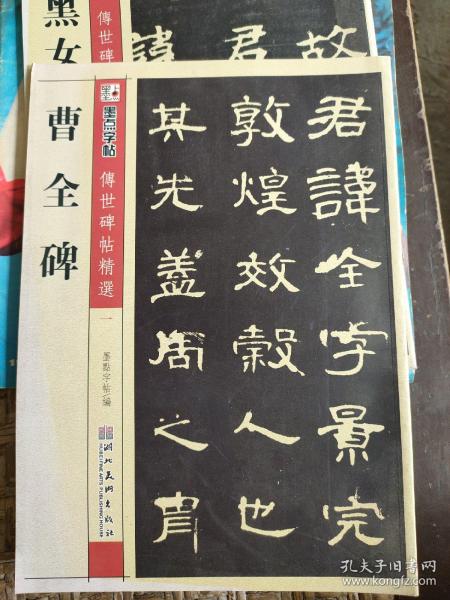 黑女
傳世碑
故
君
諱
曹全碑
墨点
墨点字帖
傳世碑帖精選
一
墨點字帖/編
湖北美術出版社
HUBEI FINE ARTS PUBLISHING HOUSE
君諱全字景完
敦煌效穀人也
其先蓋周之胄
孔夫子旧书网
book.kongfz.com